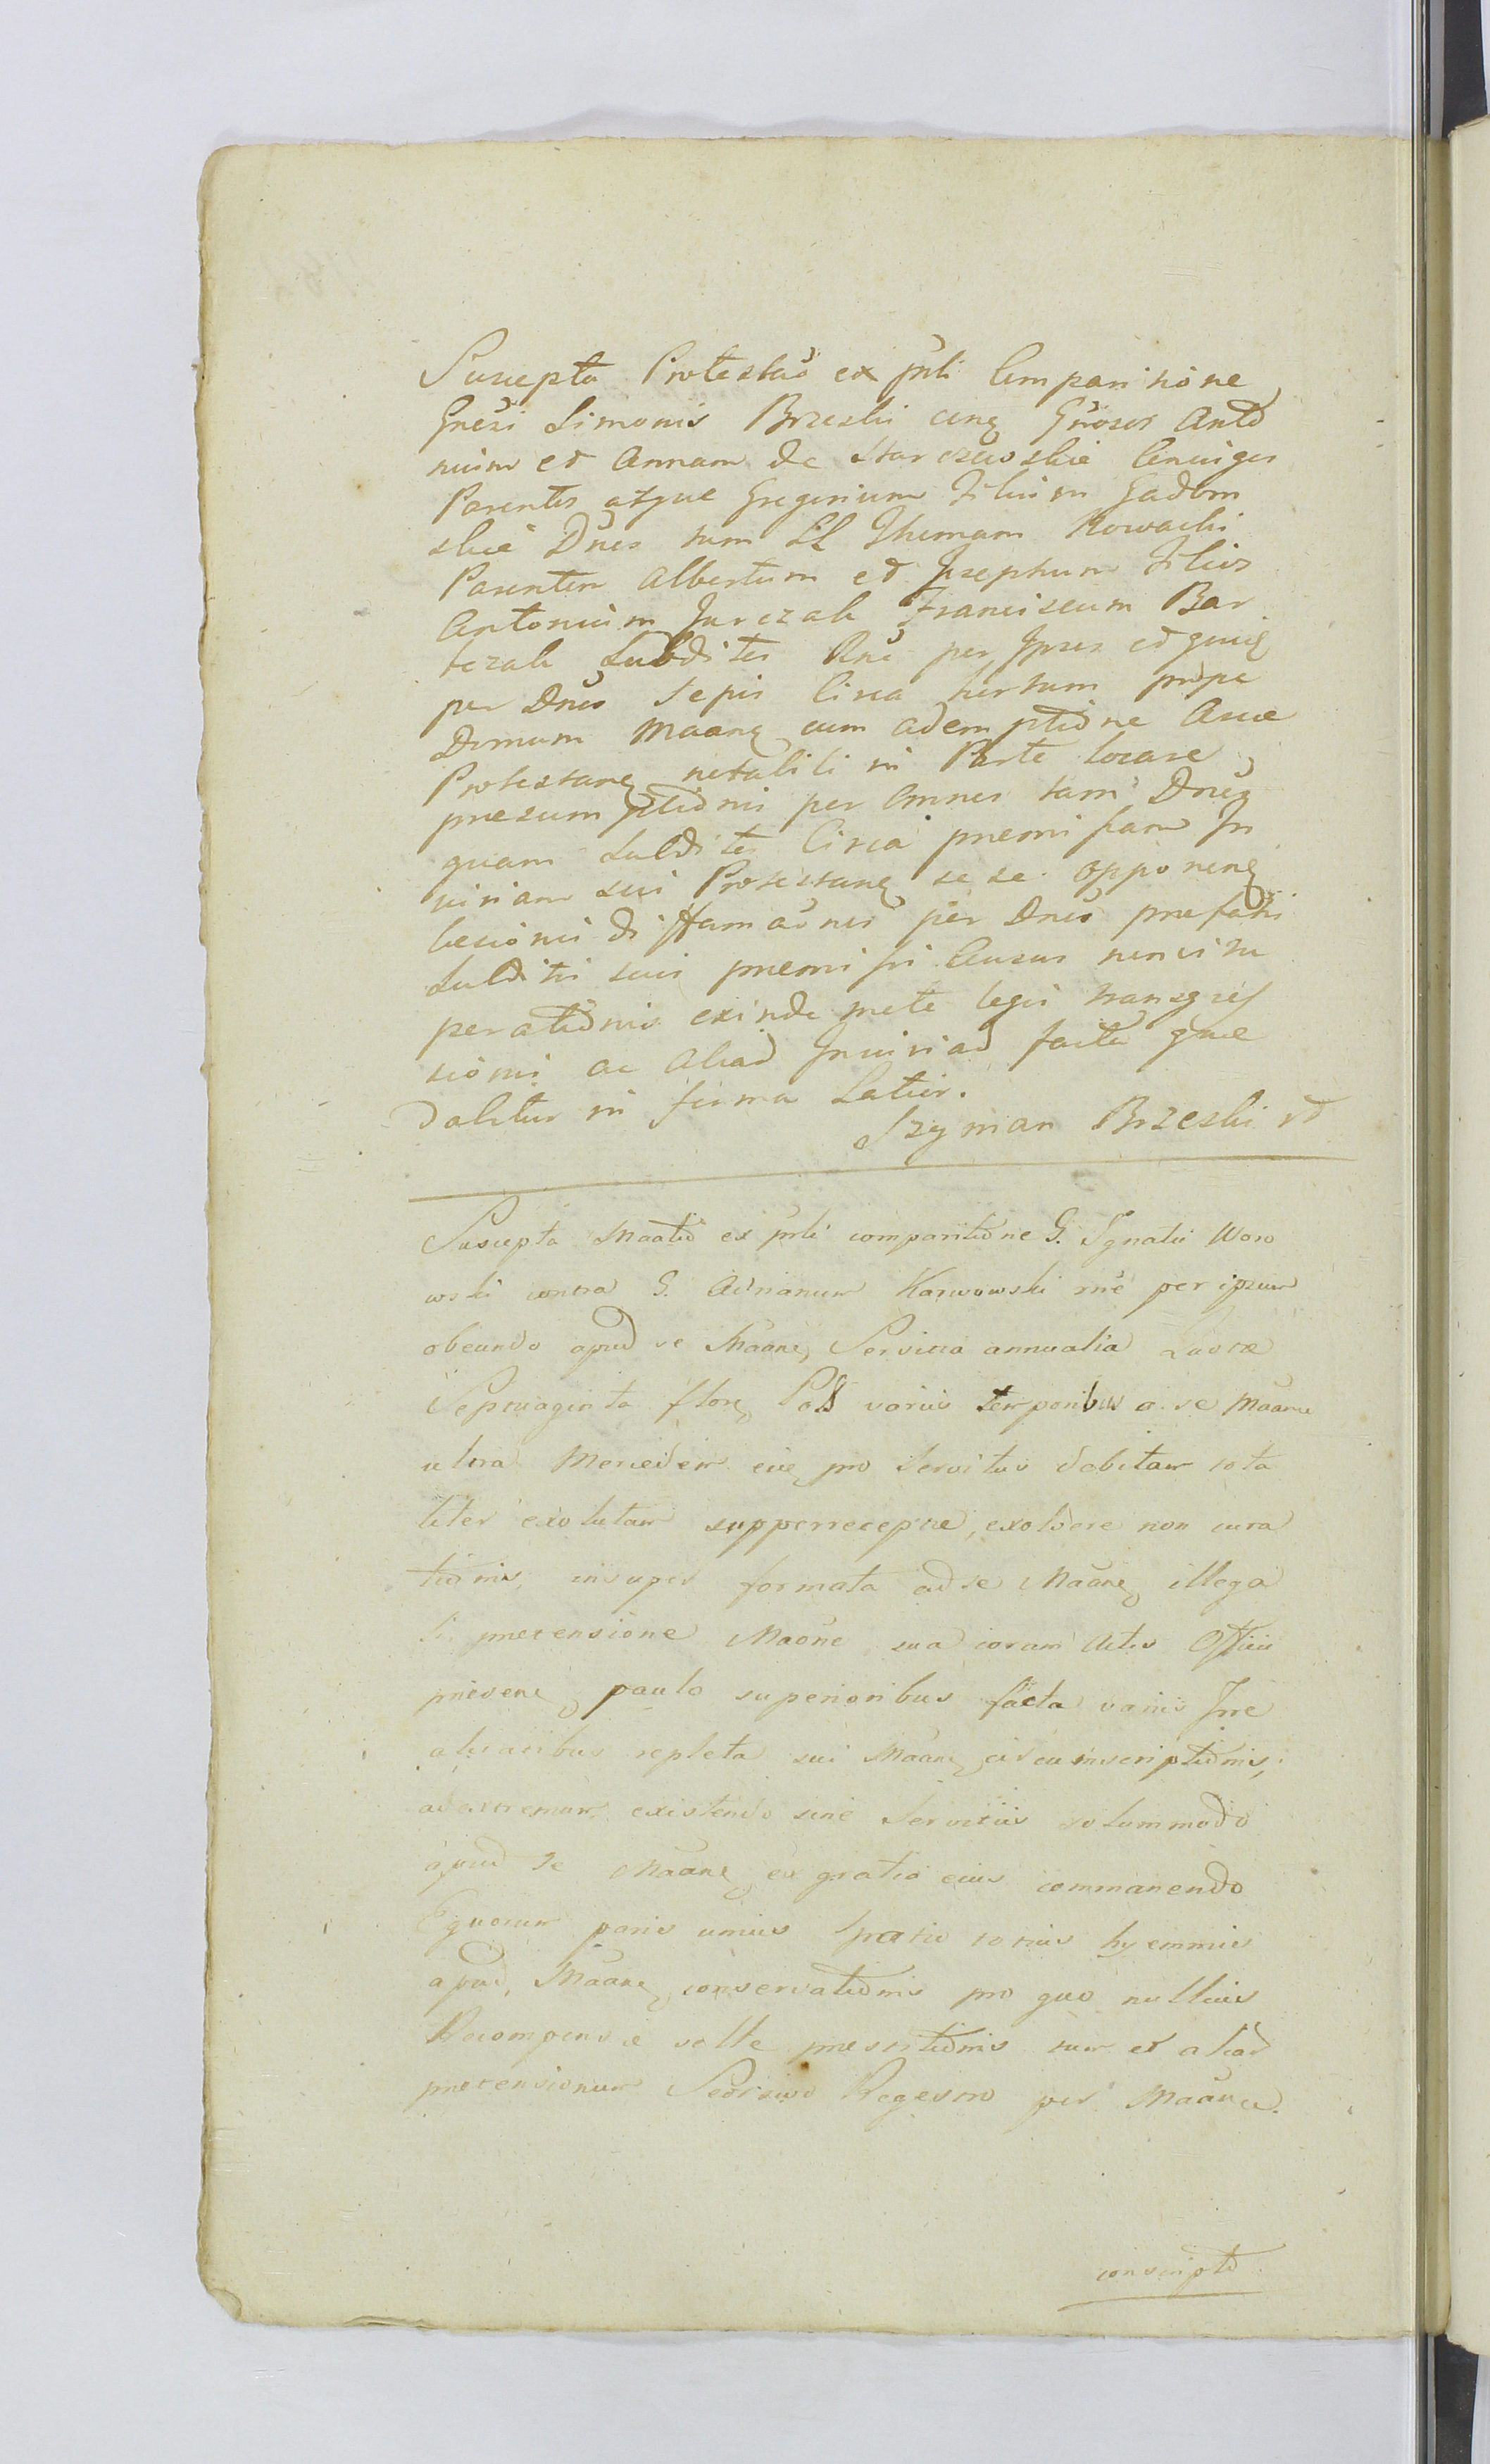 Suscepta Protestaõ ex pñti Comparitione
Gnesi Simonis Brzeski cong Gnosos Anto
nium et Annam de Starczewskie Coniuges
Parentes atque Gregorium Filium Gadom
skie Dños tum LL Thomam Nowacki
Parentem Albertum et Josephum Filios
Antonium Jurczak Franciscum Bar
tczak Subditos Rnẽ per Ipsos et quidẽ
per Dños Sepis Circa hortum prope
Domum Maang cum ademptiõne Areæ
Protestang notabili in Parte locare
presumptiõnis per Omnes tam Dnõs
quam Subditos Circa premissam In
iuriam sui Protestang se se opponeng
lesionis diffamaõnis per Dños prefatis
Subditis suis premissi Causus nonvitu
peratiõnis exinde mete legis transgres
sionis ac aliad Iniuriad facta que
dabitur in forma Latior.
Szyman Brzeski
Suscepta Maatiõ ex pñti comparitiõne G. Ignatii Woro
wski contra G. Adrianum Karwowski rnẽ per ipsum
obeundo apud se Maang Servitia annualia Quotæ
Septuaginta flong Pol variis temporibus a se Maanti
ultra Mercedem eius pro Servitus debitam tota
liter exolutam supperreceptæ, exolvere non cura
tiõnis, insuper formata ad se Maang illega
li pretensione Maõne sua coram Actis Officii
presentis paulo superioribus facta variis Irre
alitatibus repleta sui Maang circumscriptiõnis,
ad extremum existendo sine Servitiis solummodo
apud se Maang ex gratia eius commanendo
Equorum paris unius Spatio totius hyemmis
apud Maang conservatiõnis pro quo nullius
Recompensæ velle prestitiõnis tum et aliad
pretensionum Seorsivo Regestro per Maang
conscriptõ